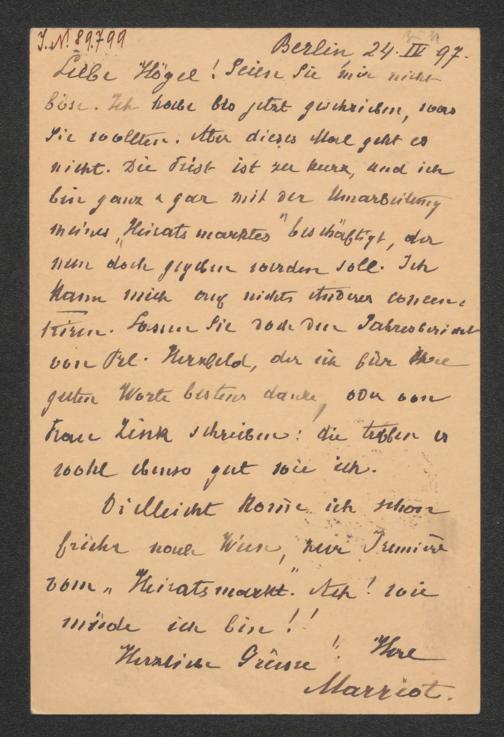 J.N. 89.799
Berlin 24. IV 97.
Liebe Högel! Seien Sie mir nicht
böse. Ich habe bis jetzt geschrieben, was
Sie wollten. Aber dieses Mal geht es
nicht. Die Frist ist zu kurz, und ich
bin ganz & gar mit der Umarbeitung
meines „Heiratsmarktes" beschäftigt, der
nun doch gegeben werden soll. Ich
kann mich auf nichts Anderes concen-
triren. Lassen Sie doch den Jahresbericht
von Frl. Herzfeld, der ich für Ihre
guten Worte bestens danke, oder von
Frau Zink schreiben: die treffen es
wohl ebenso gut wie ich.
Vielleicht kom̅e ich schon
früher nach Wien, zur Première
vom „Heiratsmarkt." Ach! wie
müde ich bin!!
Herzliche Grüsse! Ihre
Marriot.